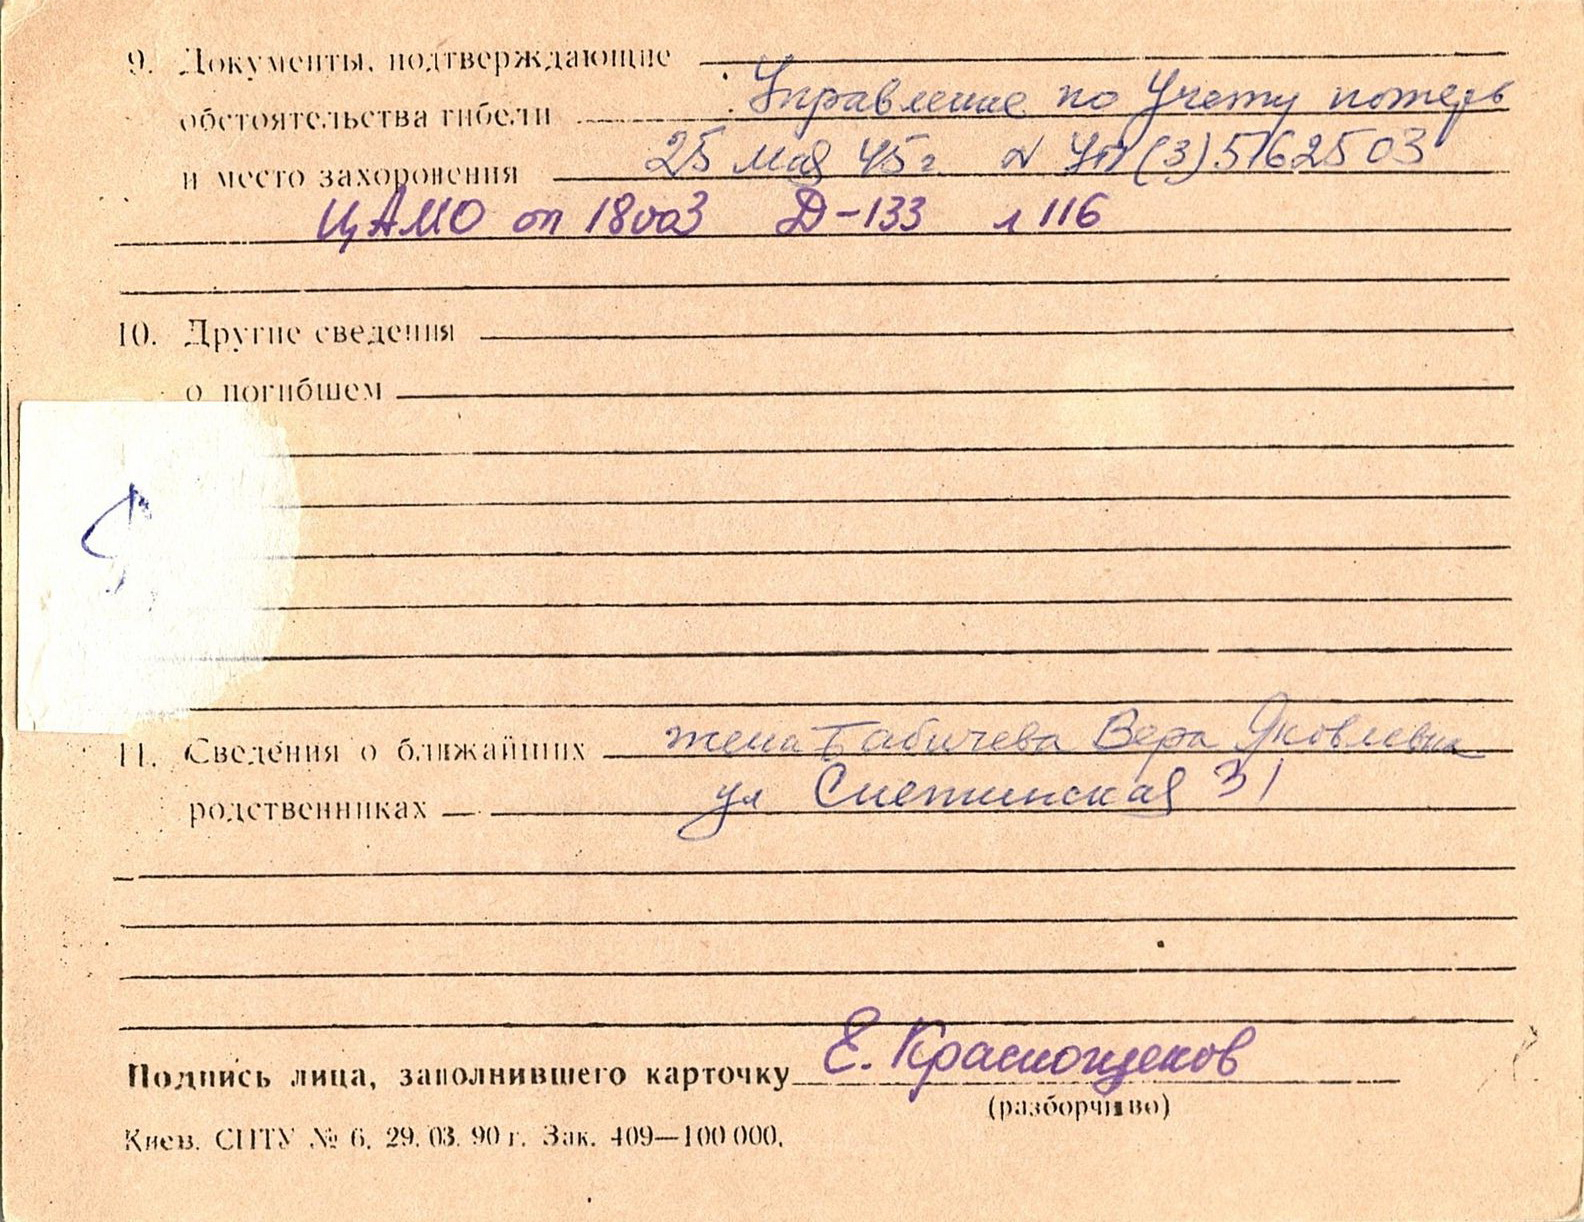 9. Документы, подтверждающие
обстоятельства гибели Управление по Учету потерь
и место захоронения 25 мая 45г. № УП (3) 5162503
ЦАМО оп 18003 Д-133 л 116
10. Другие сведения
о погибшем
11. Сведения о ближайших жена Бабичева Вера Яковлевна
родственниках ул 31
Подпись лица, заполнившего карточку Е. Краснощеков
(разборчиво)
Киев. СПТУ № 6. 29. 03. 90 г. Зак. 409—100 000.